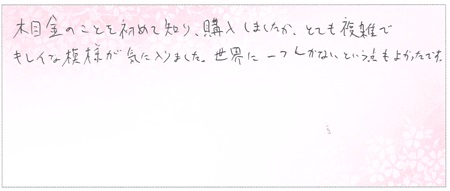 木目金のことを初めて知り、購入しましたが、とても複雑で
キレイな模様が気に入りました。世界に一つしかないという点もよかったです。